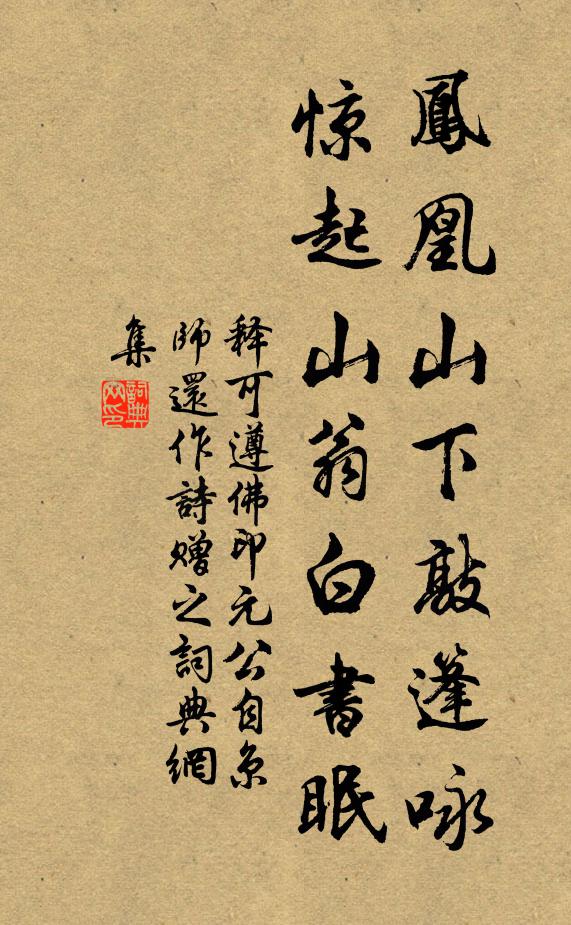 鳳凰山下敲篷咏
惊起山翁白書眠
释可遵佛印元公自京
師還作詩贈之詞典網
集
詞典网印